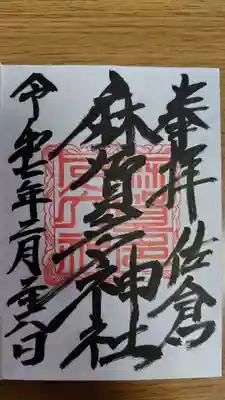 奉拝 佐倉
麻賀多神社
令和七年二月 日